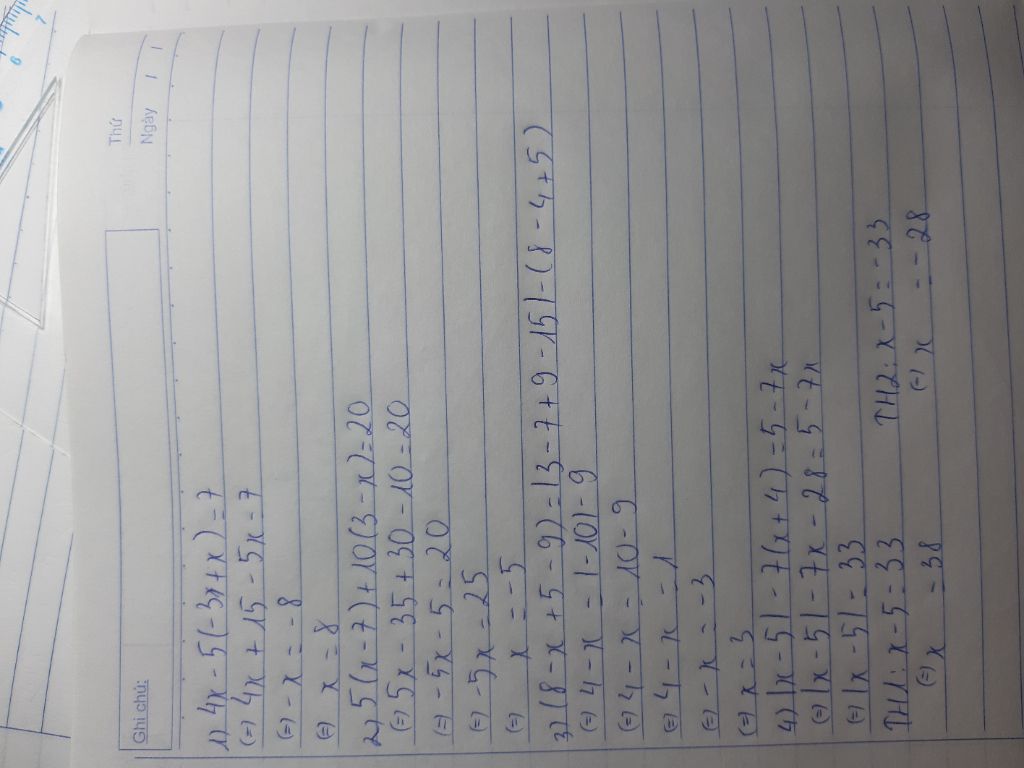 Ghi chú:
Thứ
Ngày / /
1) 4x - 5(-3x+x) = 7
(=) 4x + 15 - 5x = 7
(=) - x = - 8
(=) x = 8
2) 5(x - 7) + 10(3 - x) = 20
(=) 5x - 35 + 30 - 10 = 20
(=) - 5x - 5 = 20
(=) - 5x = 25
(=) x = - 5
3) (8 - x + 5 - 9) = |3 - 7 + 9 - 15| - (8 - 4 + 5)
(=) 4 - x = |-10| - 9
(=) 4 - x = 10 - 9
(=) 4 - x = 1
(=) - x = - 3
(=) x = 3
4) |x - 5| - 7(x + 4) = 5 - 7x
(=) |x - 5| - 7x - 28 = 5 - 7x
(=) |x - 5| = 33
TH1: x - 5 = 33 TH2: x - 5 = - 33
(=) x = 38 (=) x = - 28